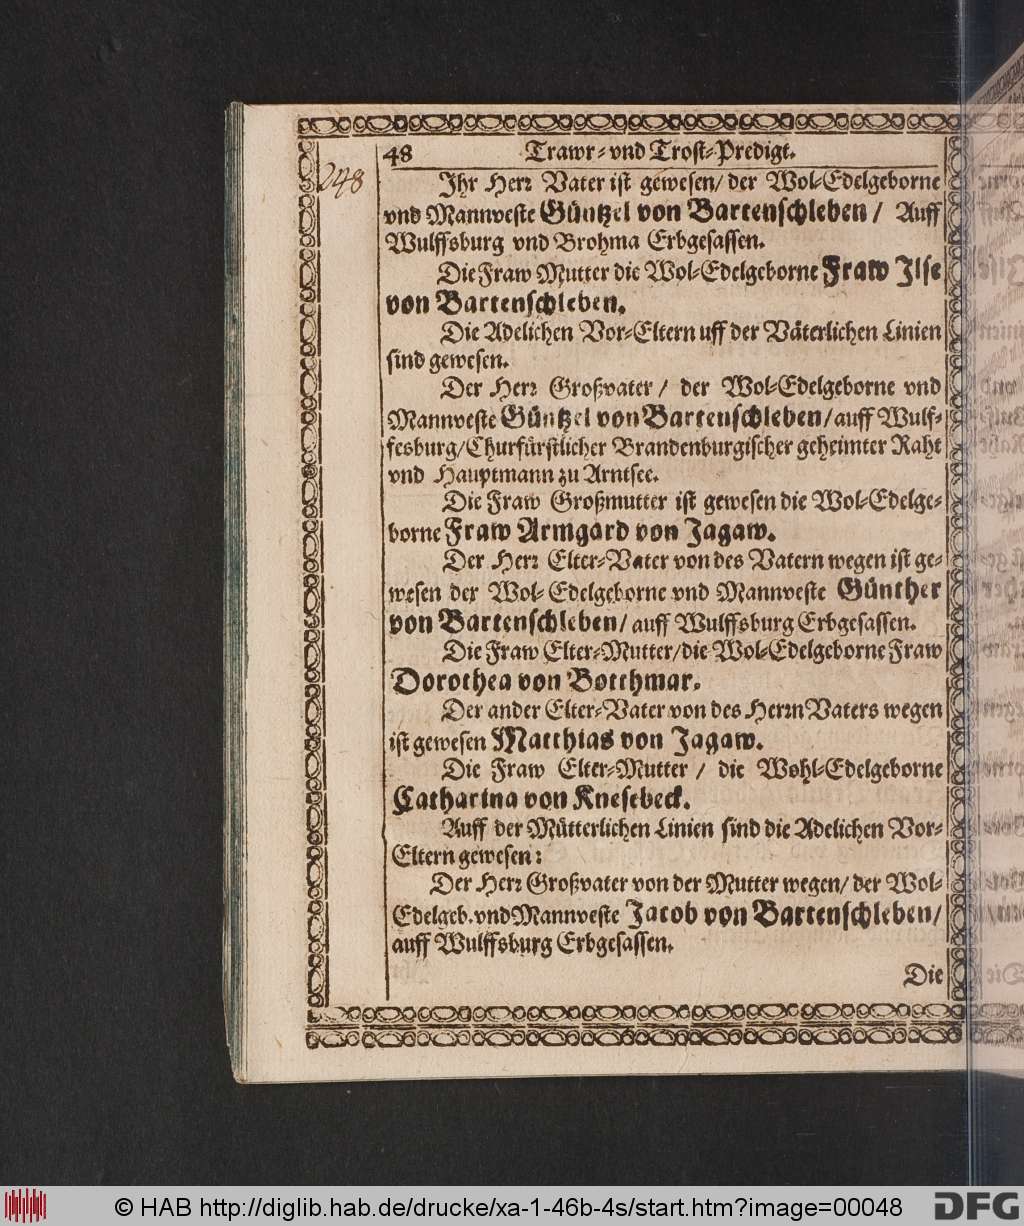 48 Trawr- vnd Trost-Predigt.
248
Ihr Herr Vater ist gewesen/ der Wol-Edelgeborne
vnd Mannveste Güntzel von Bartenschleben / Auff
Wulffsburg vnd Brohma Erbgesassen.
Die Fraw Mutter die Wol-Edelgeborne Fraw Ilse
von Bartenschleben.
Die Adelichen Vor-Eltern uff der Väterlichen Linien
sind gewesen.
Der Herr Großvater / der Wol-Edelgeborne vnd
Mannveste Güntzel von Bartenschleben/ auff Wulf-
fesburg/Churfürstlicher Brandenburgischer geheimter Raht
vnd Hauptmann zu Arntsee.
Die Fraw Großmutter ist gewesen die Wol-Edelge-
borne Fraw Armgard von Jagaw.
Der Herr Elter-Vater von des Vatern wegen ist ge-
wesen der Wol-Edelgeborne vnd Mannveste Günther
von Bartenschleben/ auff Wulffsburg Erbgesassen.
Die Fraw Elter-Mutter/die Wol-Edelgeborne Fraw
Dorothea von Botthmar.
Der ander Elter-Vater von des Herrn Vaters wegen
ist gewesen Matthias von Jagaw.
Die Fraw Elter-Mutter / die Wohl-Edelgeborne
Catharina von Knesebeck.
Auff der Mütterlichen Linien sind die Adelichen Vor-
Eltern gewesen:
Der Herr Großvater von der Mutter wegen/ der Wol-
Edelgeb. vnd Mannveste Jacob von Bartenschleben/
auff Wulffsburg Erbgesassen.
Die
© HAB http://diglib.hab.de/drucke/xa-1-46b-4s/start.htm?image=00048
DFG